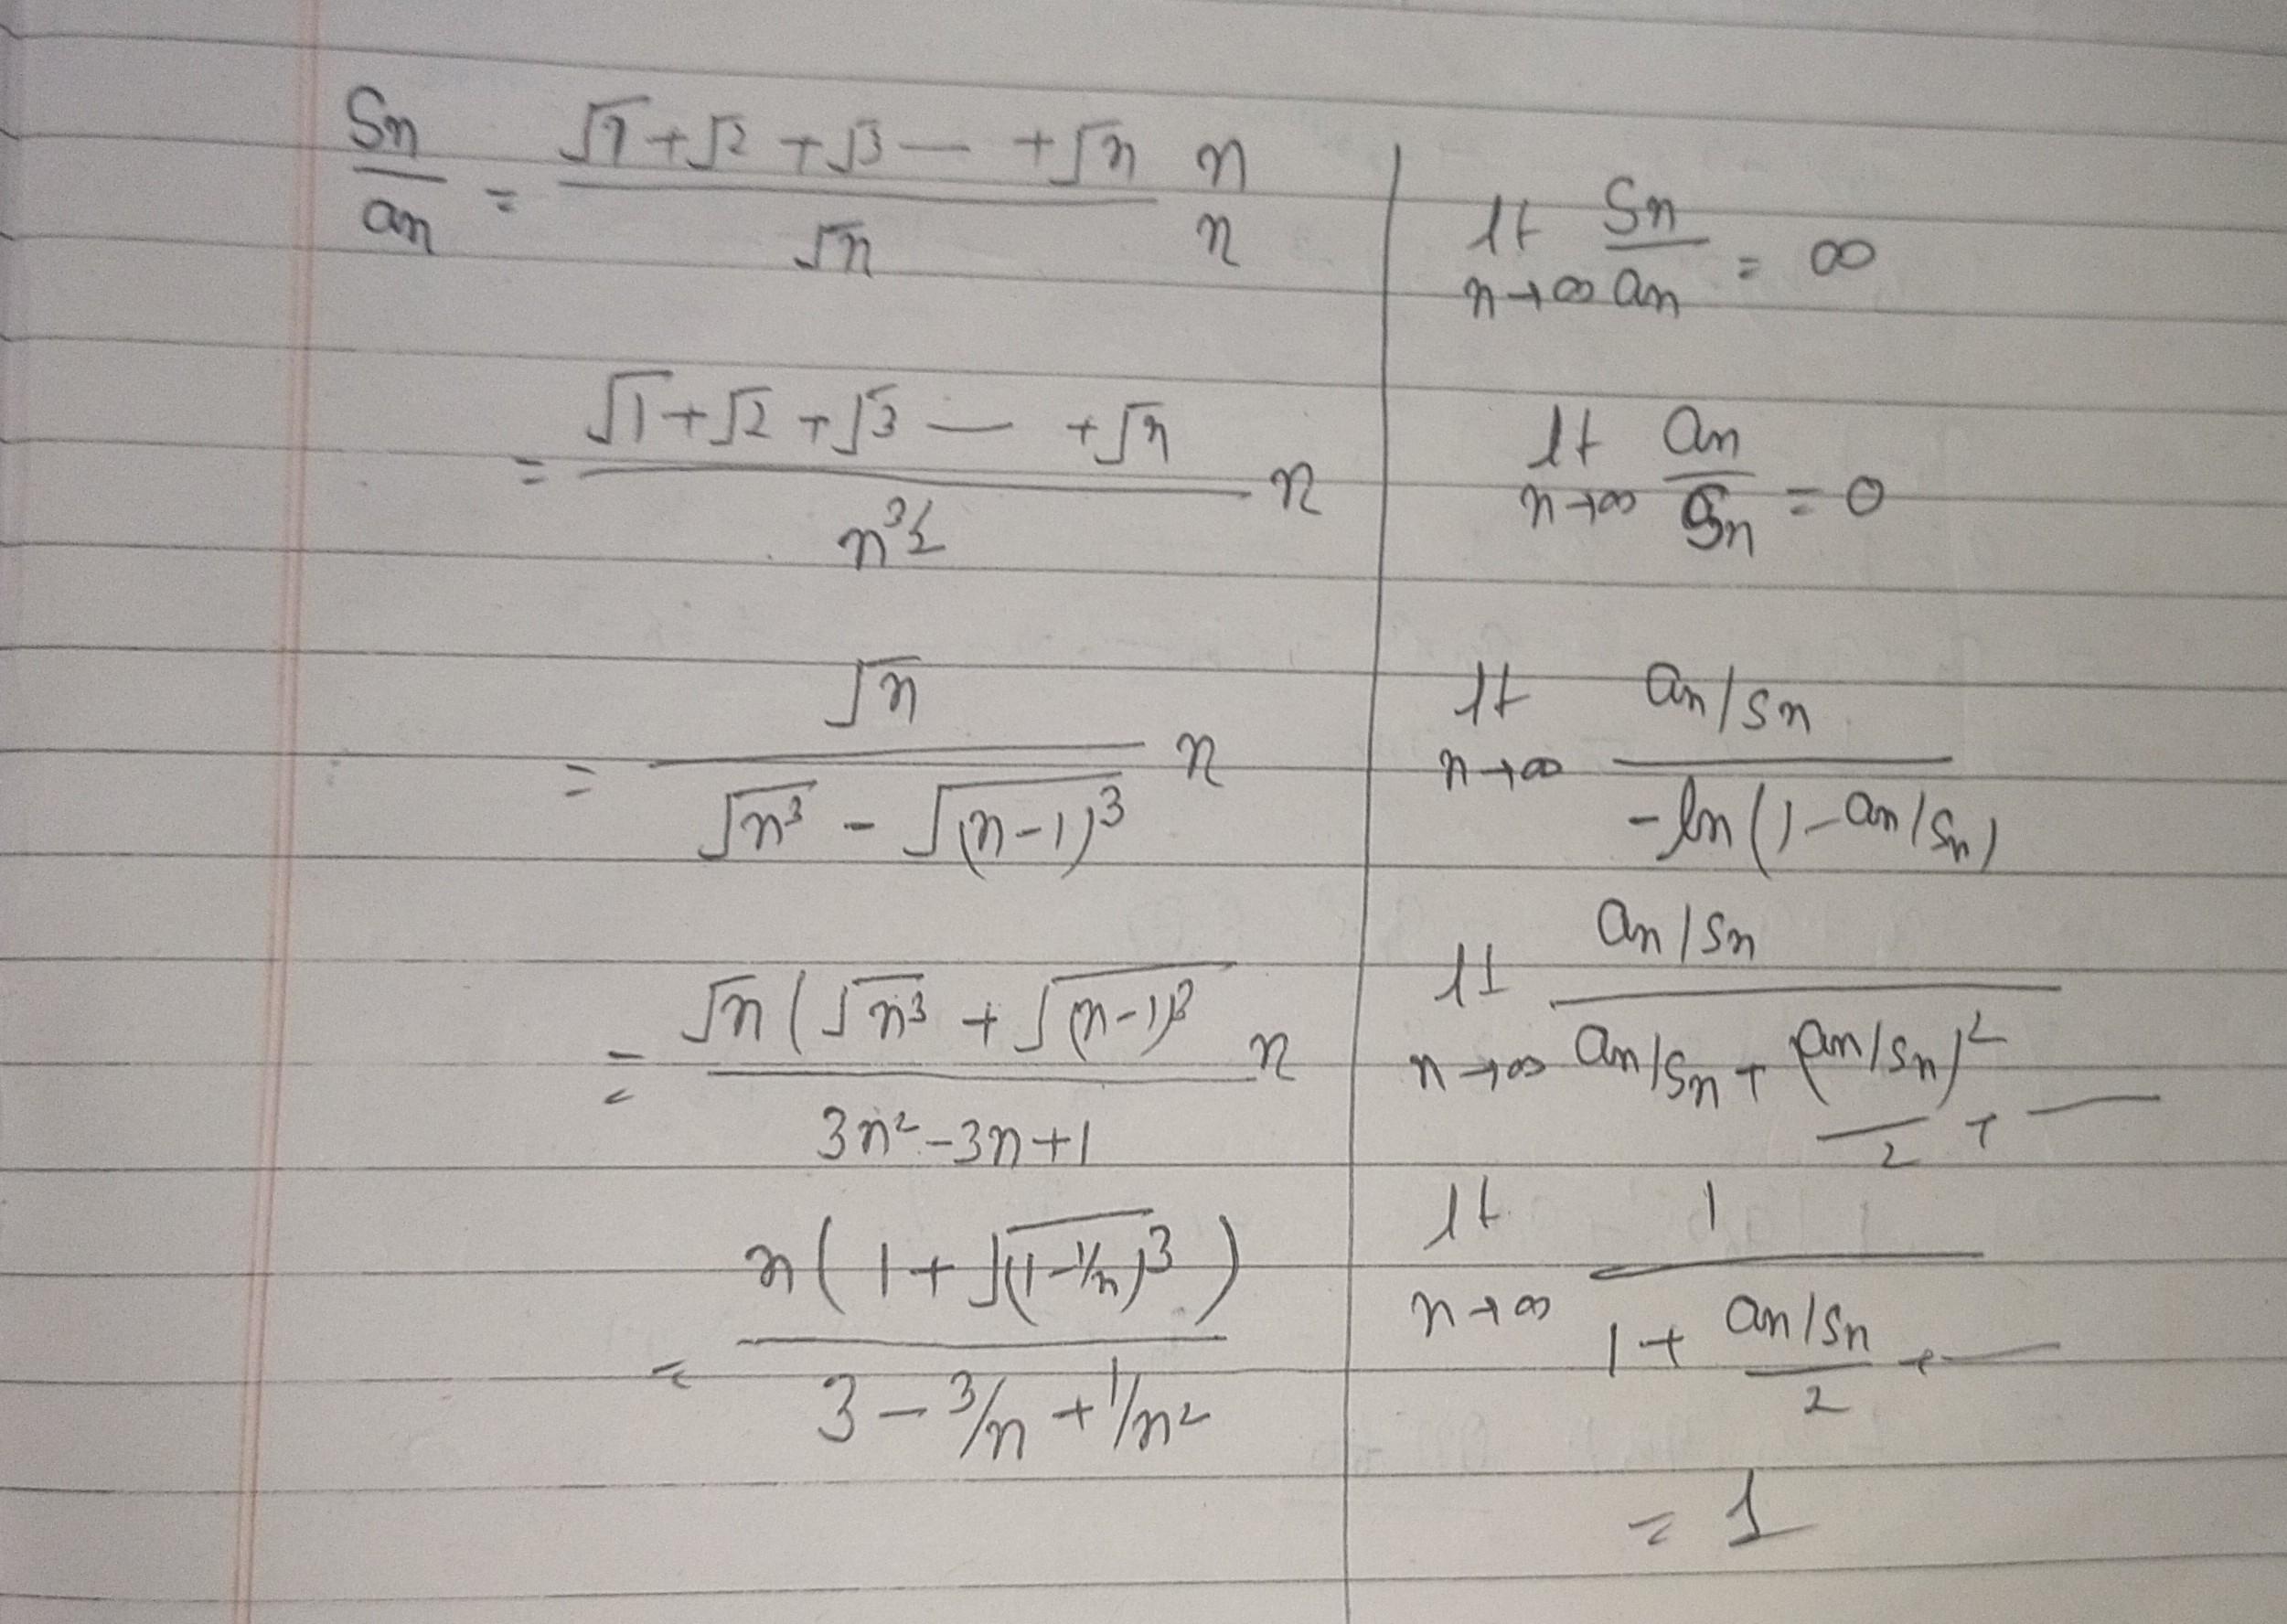 Sn/an = (√1+√2+√3— +√n)/√n n/n
= (√1+√2+√3— +√n)/n^3/2 n
= √n/(√n³ - √(n-1)³) n
= √n(√n³ + √(n-1)³/(3n²-3n+1) n
= n(1+√(1-1/n)³)/(3-3/n+1/n²)
lt n→∞ Sn/an = ∞
lt n→∞ an/Sn = 0
lt n→∞ (an/sn)/(-ln(1-an/Sn))
lt n→∞ (an/sn)/(an/Sn + (an/Sn)²/2 + —)
lt n→∞ 1/(1+ (an/Sn)/2 + —)
= 1